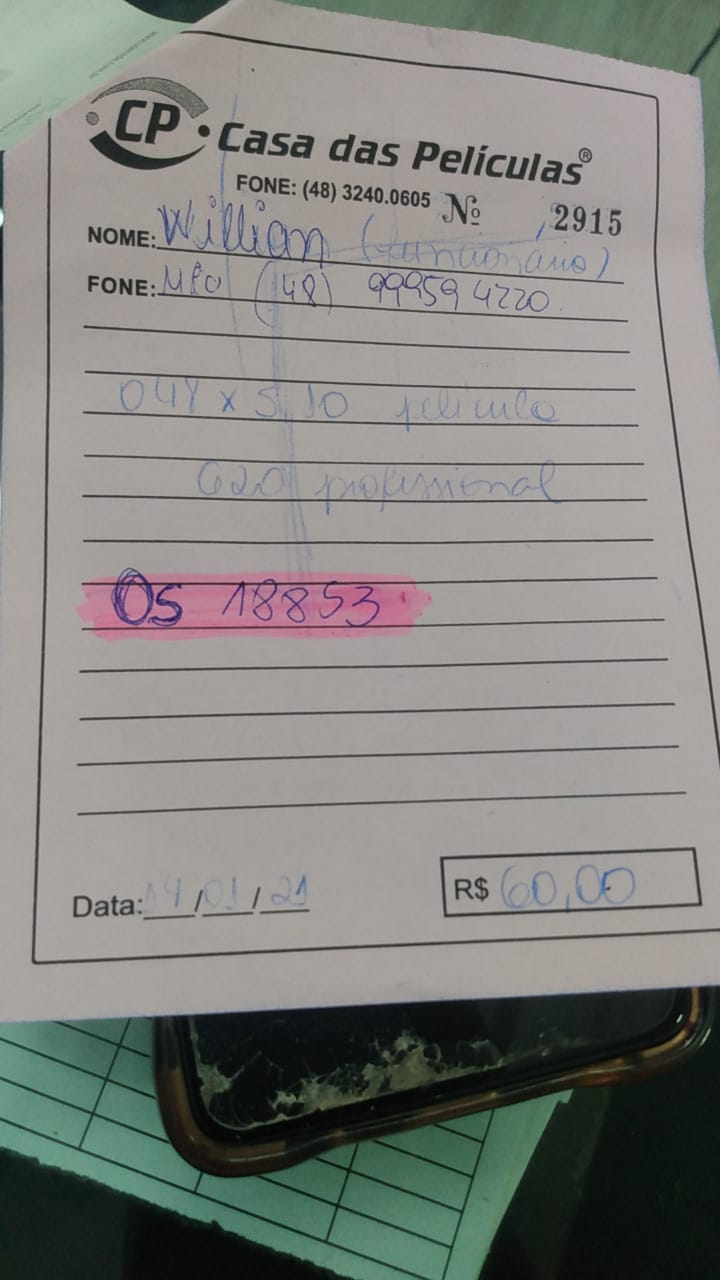 CP • Casa das Películas®
FONE: (48) 3240.0605 Nº 2915
NOME: Willian (funcionário)
FONE: (48) 99959 4220
048 x 5,10 película
G20 profissional
OS 18853
Data: /01/21
R$ 60,00